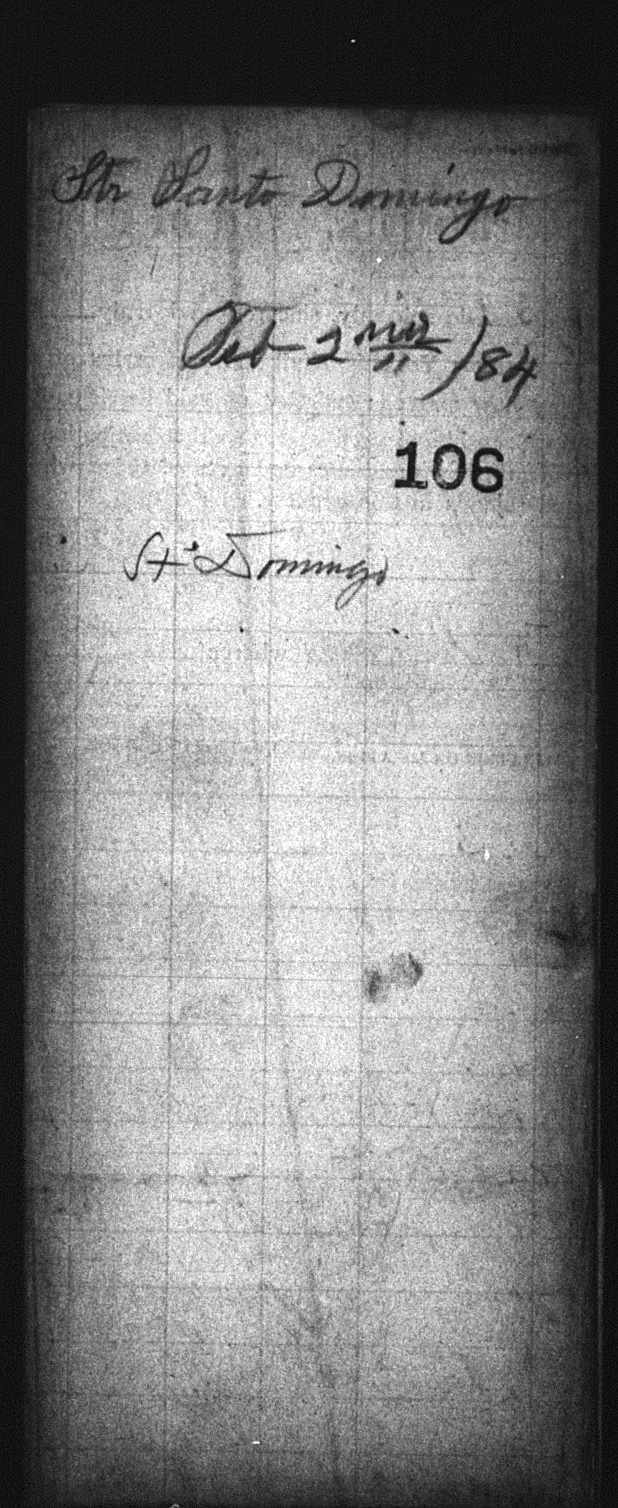 Str Santo Domingo
Feb 2 /84
106
St. Domingo